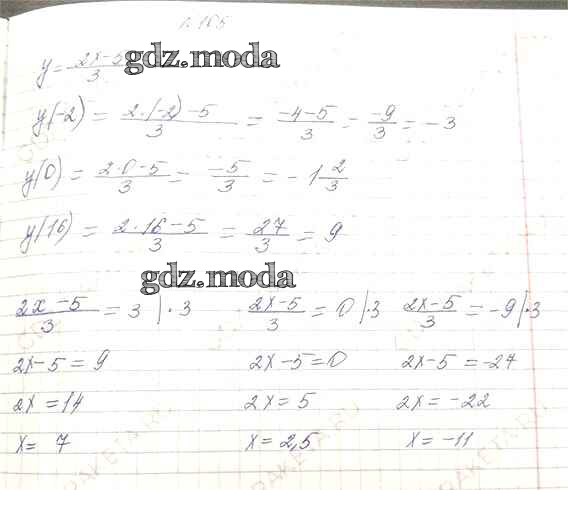 1.165
y = (2x-5)/3
gdz.moda
y(-2) = (2·(-2)-5)/3 = (-4-5)/3 = (-9)/3 = -3
y(0) = (2·0-5)/3 = (-5)/3 = -1 2/3
y(16) = (2·16-5)/3 = 27/3 = 9
gdz.moda
(2x-5)/3 = 3 |·3 (2x-5)/3 = 0 |·3 (2x-5)/3 = -9 |·3
2x-5 = 9 2x-5=0 2x-5 = -27
2x = 14 2x = 5 2x = -22
x = 7 x = 2,5 x = -11